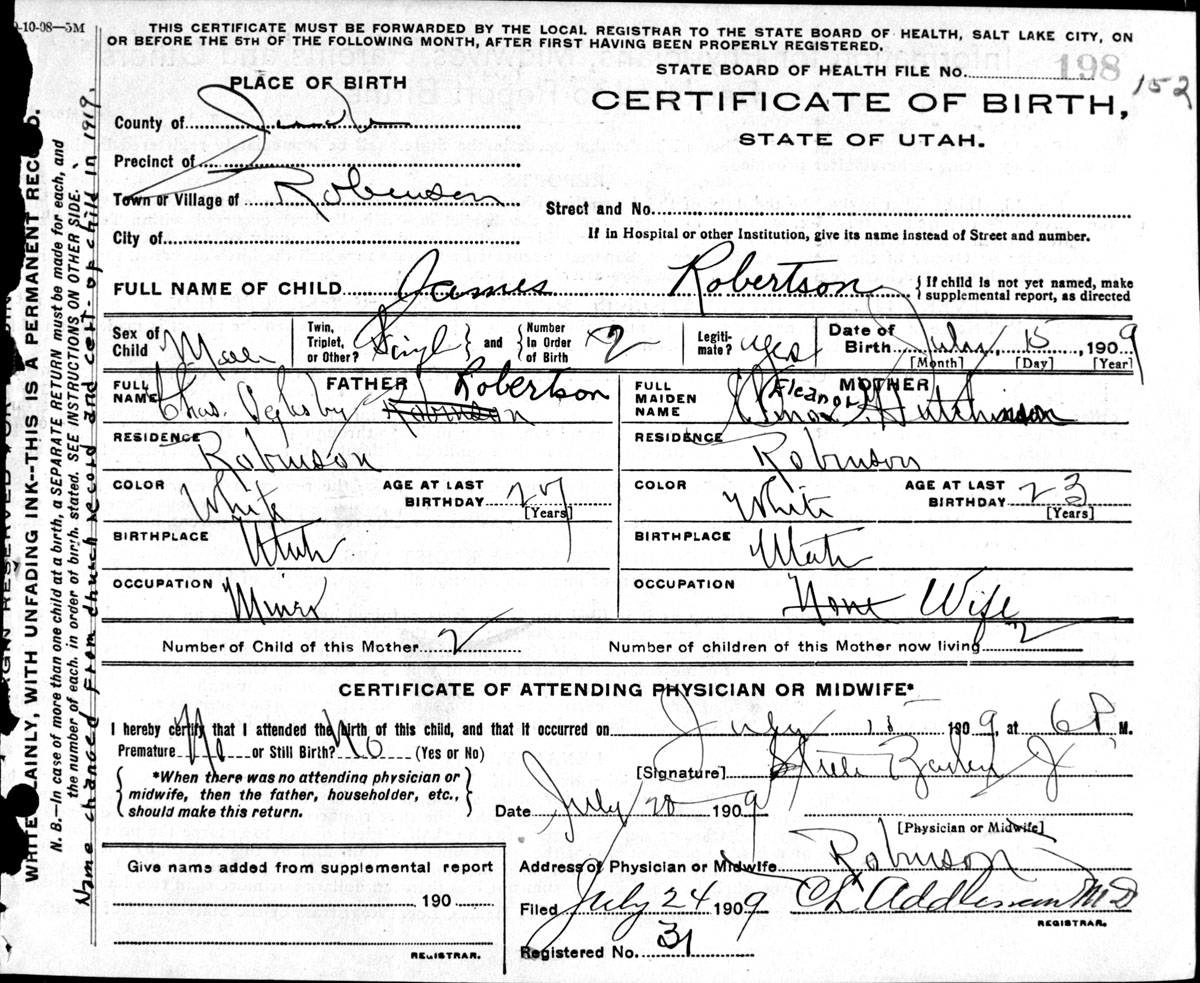 9-10-08—5M
THIS CERTIFICATE MUST BE FORWARDED BY THE LOCAL REGISTRAR TO THE STATE BOARD OF HEALTH, SALT LAKE CITY, ON
OR BEFORE THE 5TH OF THE FOLLOWING MONTH, AFTER FIRST HAVING BEEN PROPERLY REGISTERED.
PLACE OF BIRTH
STATE BOARD OF HEALTH FILE No. 198 152
CERTIFICATE OF BIRTH,
STATE OF UTAH.
County of
Precinct of
Town or Village of Robinson
Street and No.
City of
If in Hospital or other Institution, give its name instead of Street and number.
FULL NAME OF CHILD James Robertson { If child is not yet named, make
supplemental report, as directed
Sex of Child Male
Twin, Triplet, or Other? Singl } and { Number In Order of Birth 2
Legitimate? yes
Date of Birth July 15, 1909
[Month] [Day] [Year]
FATHER
FULL NAME Chas. Robinson Robertson
RESIDENCE Robinson
COLOR White AGE AT LAST BIRTHDAY 27
[Years]
BIRTHPLACE Utah
OCCUPATION Miner
MOTHER
FULL MAIDEN NAME Eleanor Hutchinson
RESIDENCE Robinson
COLOR White AGE AT LAST BIRTHDAY 23
[Years]
BIRTHPLACE Utah
OCCUPATION None Wife
Number of Child of this Mother 2
Number of children of this Mother now living 2
CERTIFICATE OF ATTENDING PHYSICIAN OR MIDWIFE*
I hereby certify that I attended the birth of this child, and that it occurred on July 15 1909, at 6 P M.
Premature No or Still Birth? No (Yes or No)
{ *When there was no attending physician or
midwife, then the father, householder, etc.,
should make this return. }
[Signature] Bailey Jr
Date July 20 1909
[Physician or Midwife]
Give name added from supplemental report
190
REGISTRAR.
Address of Physician or Midwife Robinson
Filed July 24 1909 MD
REGISTRAR.
Registered No. 31
MARGIN RESERVED FOR BINDING
WRITE PLAINLY, WITH UNFADING INK--THIS IS A PERMANENT RECORD.
N. B.—In case of more than one child at a birth, a SEPARATE RETURN must be made for each, and
the number of each, in order of birth, stated. SEE INSTRUCTIONS ON OTHER SIDE.
Name changed from church record and cert- of child in 1919.